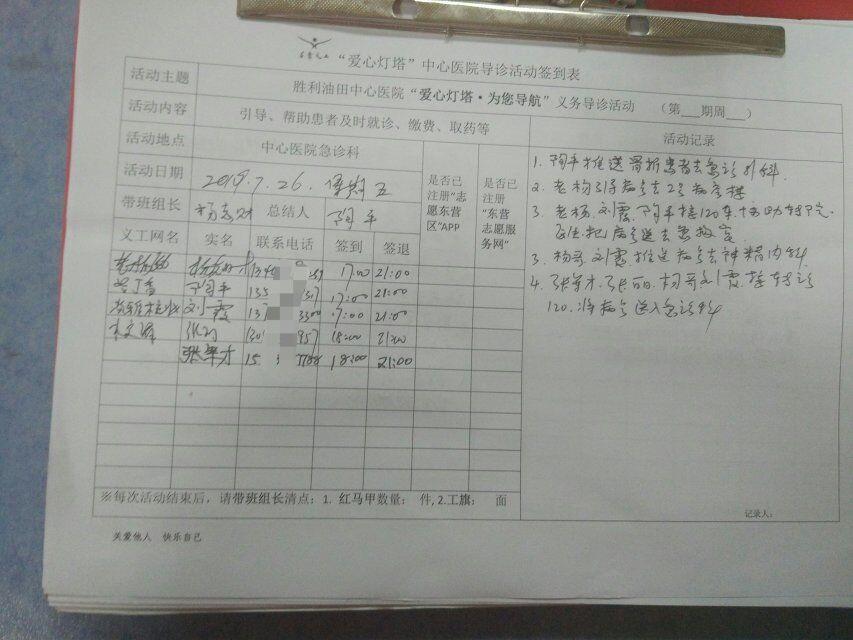 “爱心灯塔”中心医院导诊活动签到表
活动主题 胜利油田中心医院“爱心灯塔·为您导航”义务导诊活动 （第___期周___）
活动内容 引导、帮助患者及时就诊、缴费、取药等 活动记录
活动地点 中心医院急诊科
活动日期 2019.7.26. 星期五
是否已注册“志愿东营区”APP
是否已注册“东营志愿服务网”
带班组长 杨志财 总结人 陶平
义工网名 实名 联系电话 签到 签退
17:00 21:00
紫丁香 陶平 135 17:00 21:00
刘霞 137 3300 17:00 21:00
18:00 21:00
张军才 15 7788 18:00 21:00
1. 陶平推送骨折患者去急诊外科.
2. 老杨引导病号去2号病房楼
3. 老杨.刘霞.陶平接120车.协助转
医生把病号送去
3. 杨哥.刘霞推送病号去神精内科.
4. 张军才.张丽.杨哥刘霞.接转诊
120.将病号送入急诊科
※每次活动结束后，请带班组长清点：1. 红马甲数量： 件,2.工旗： 面
记录人：
关爱他人 快乐自己